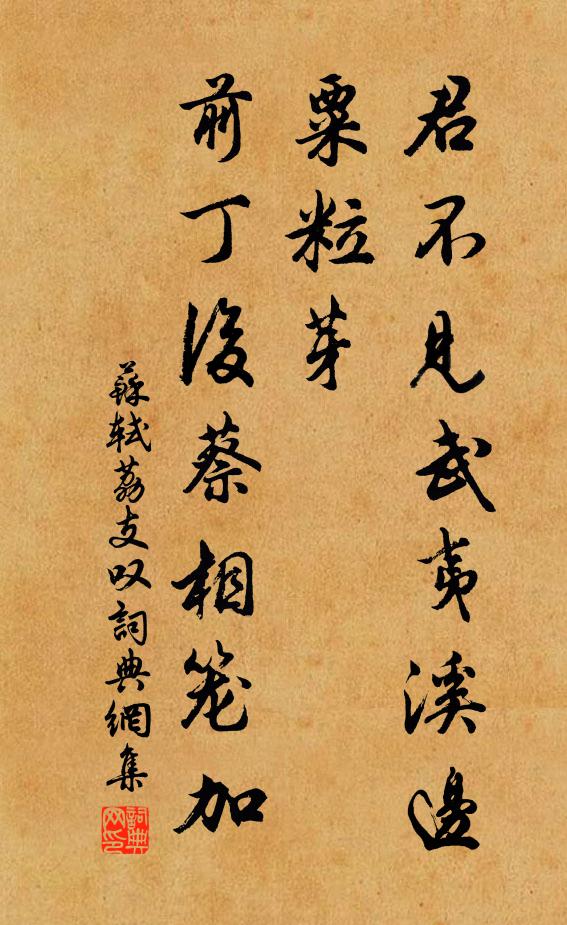 君不見武夷溪邊
粟粒芽
前丁後蔡相笼加
蘇軾荔支叹詞典網集
詞典网印